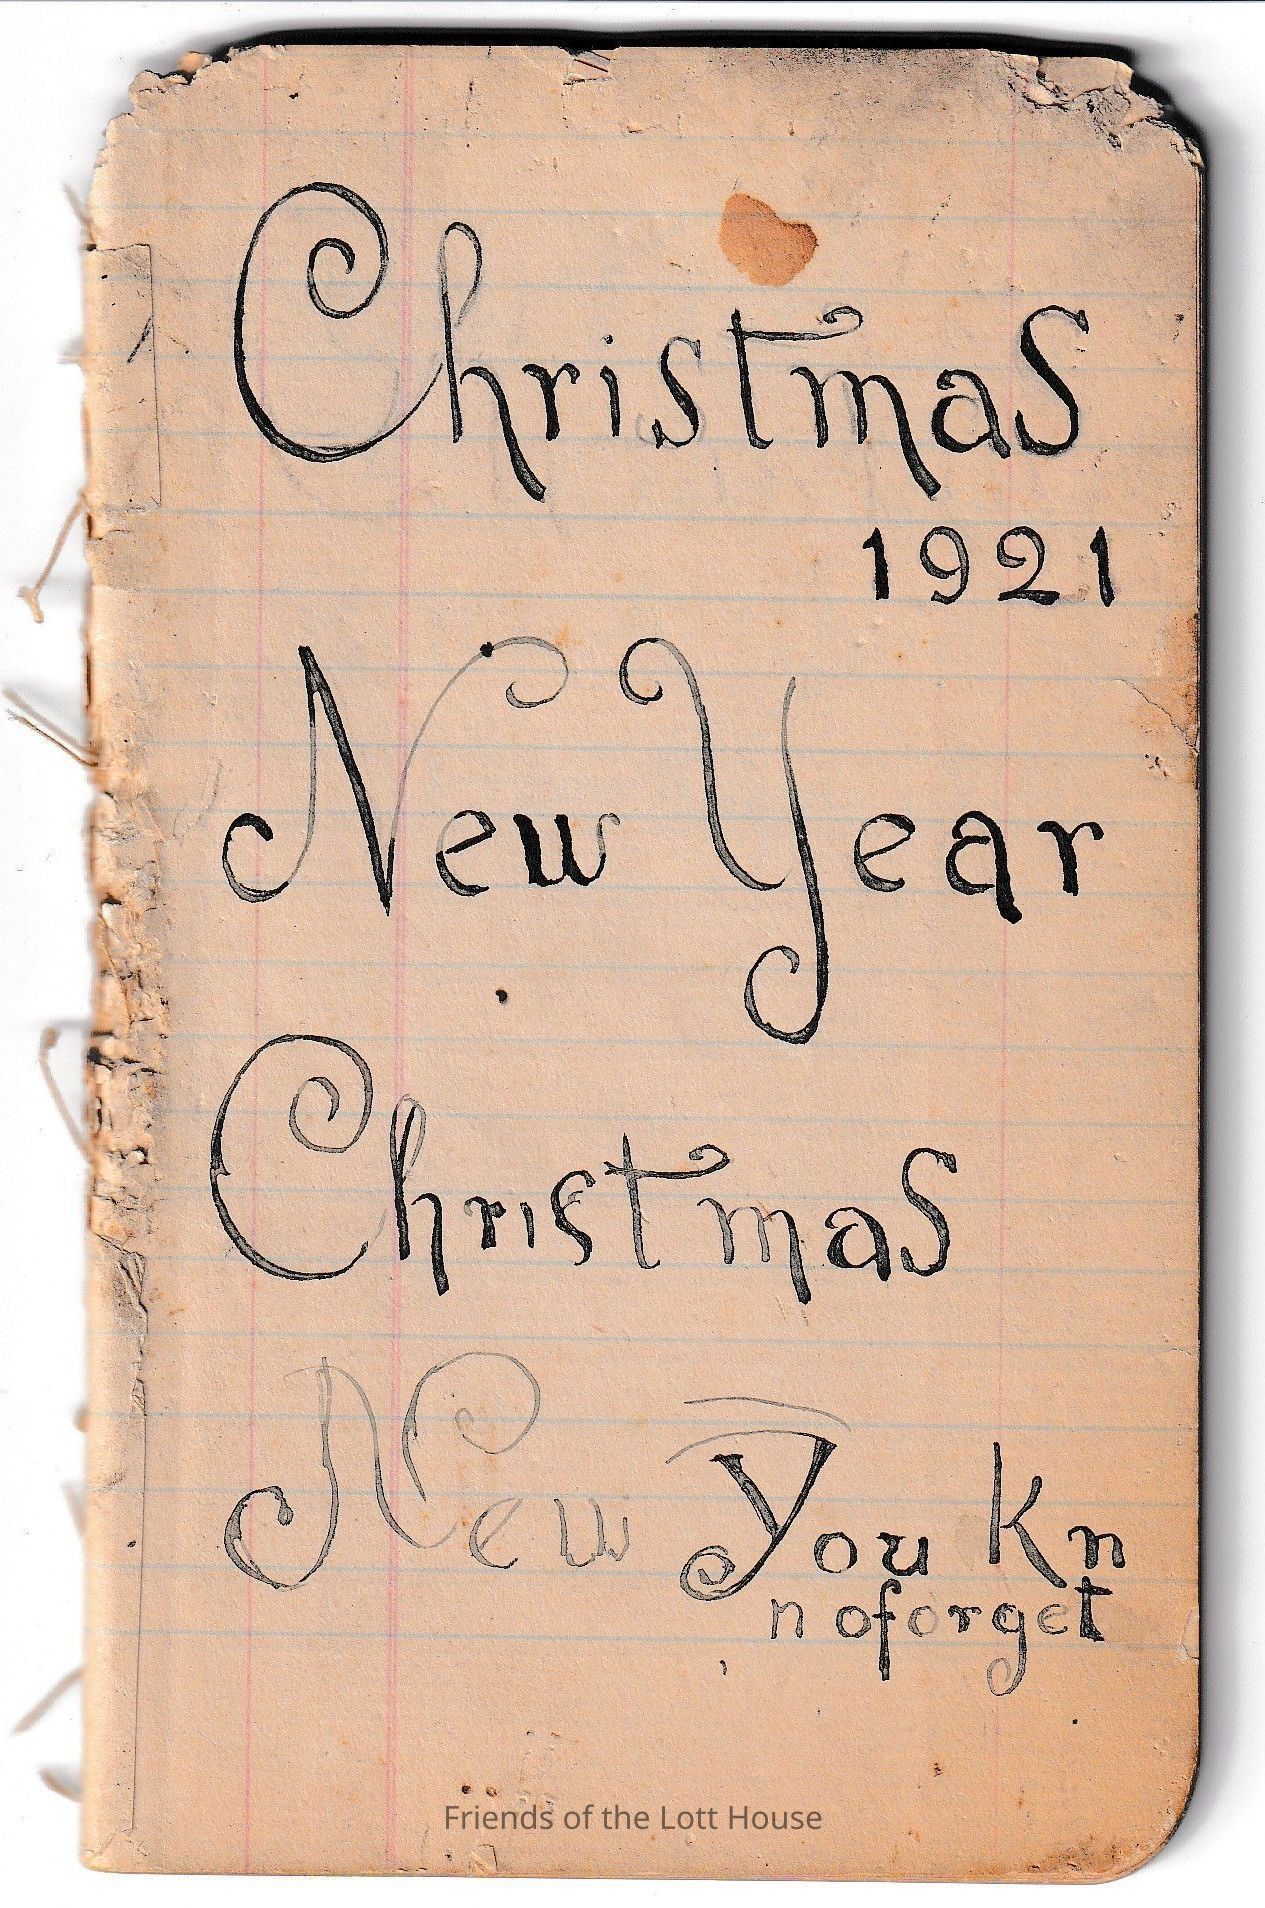 Christmas
1921
New Year
Christmas
New You Kn
noforget
Friends of the Lott House